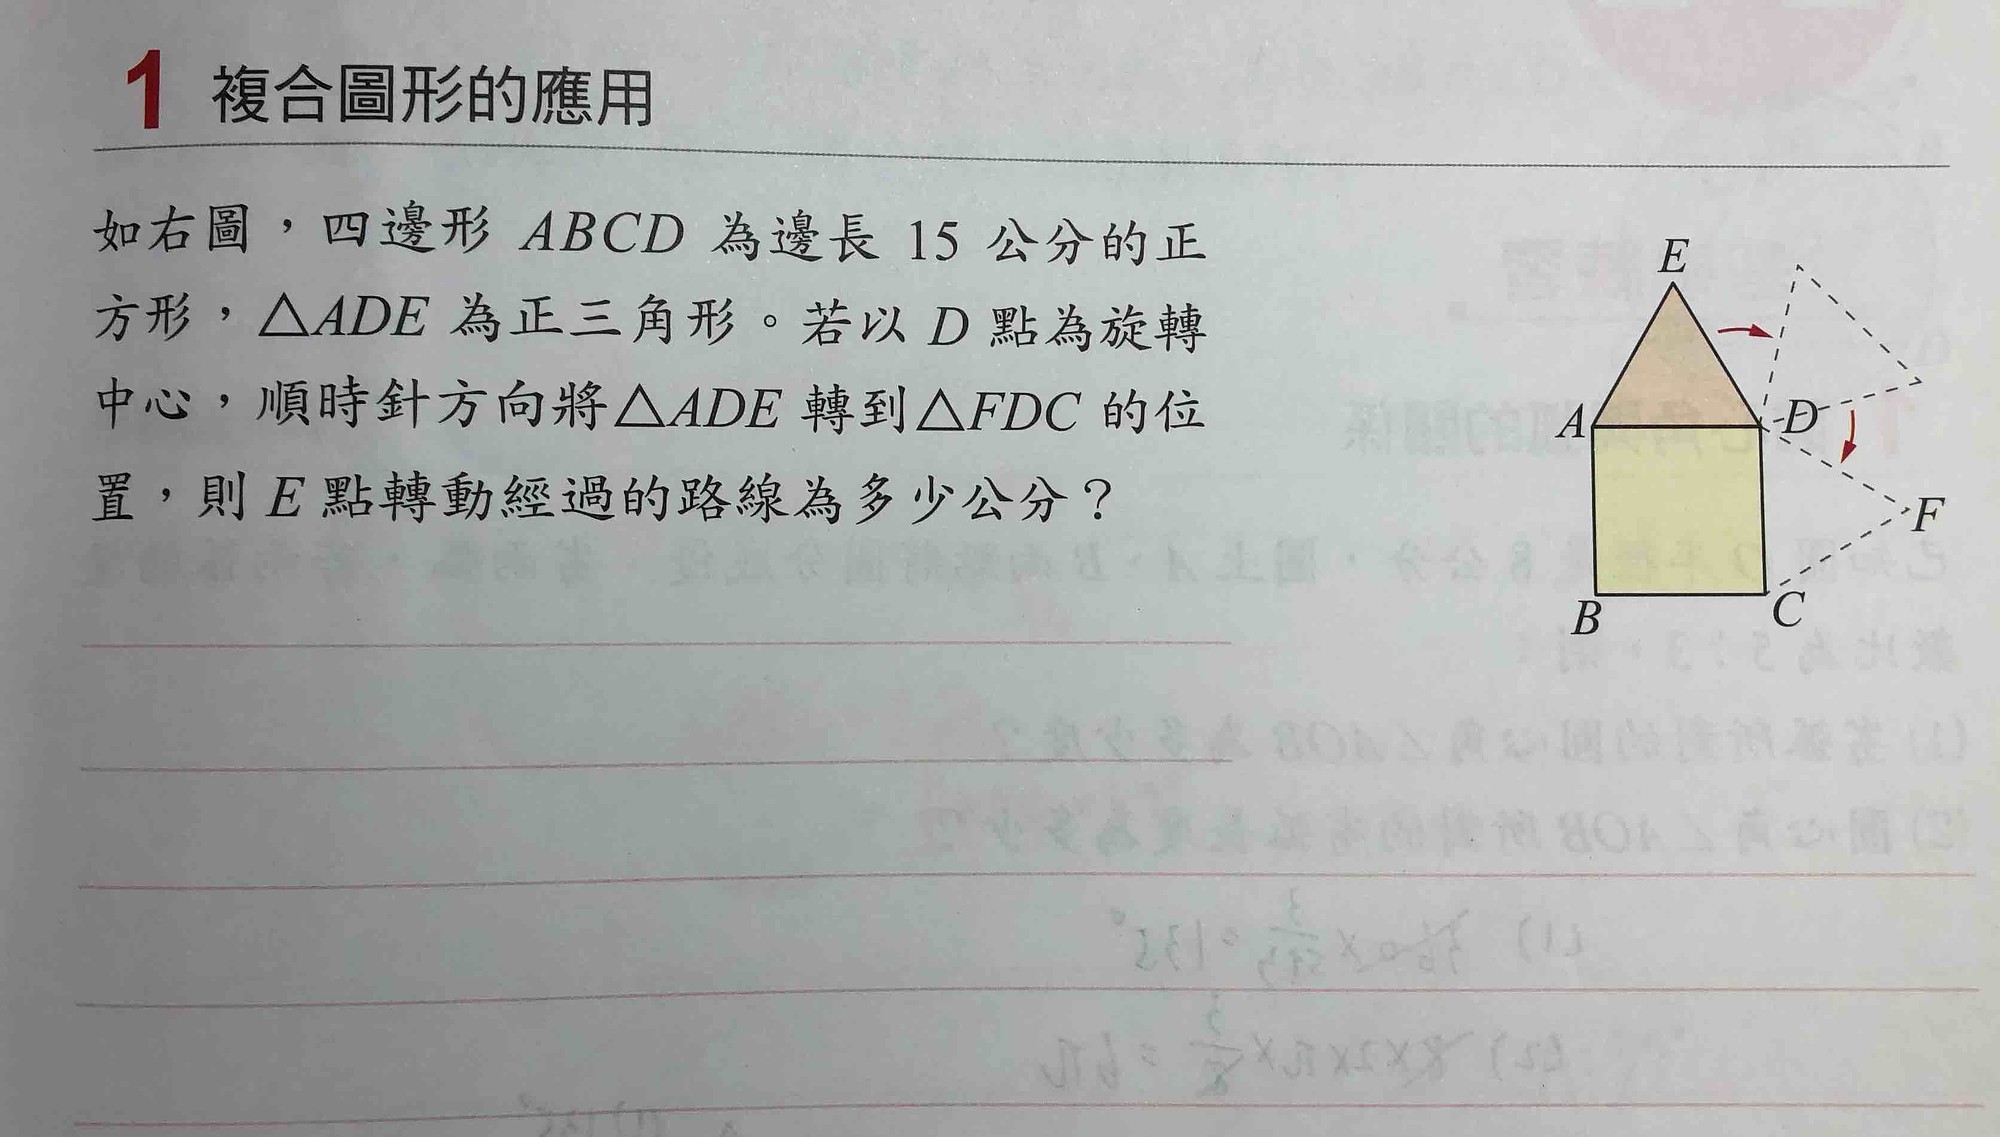 1 複合圖形的應用
如右圖，四邊形 ABCD 為邊長 15 公分的正
方形，△ADE 為正三角形。若以 D 點為旋轉
中心，順時針方向將△ADE 轉到△FDC 的位
置，則 E 點轉動經過的路線為多少公分？
E
A
D
F
B
C